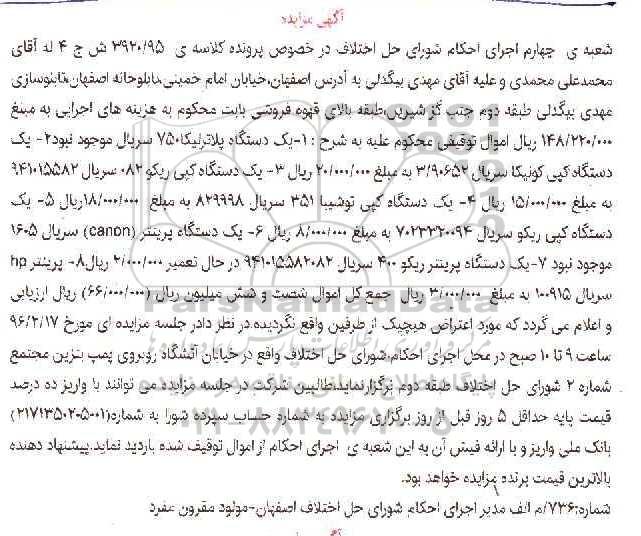 آگهی مزایده
شعبه ی چهارم اجرای احکام شورای حل اختلاف در خصوص پرونده کلاسه ی ۳۹۲۰/۹۵ ش ح ۴ له آقای
محمدعلی محمدی و علیه آقای مهدی بیگدلی به آدرس اصفهان،خیابان امام خمینی،تابلوخانه اصفهان،تابلوسازی
مهدی بیگدلی طبقه دوم جنب گز شیرین،طبقه بالای قهوه فروشی بابت محکوم به هزینه های اجرایی به مبلغ
۱۴۸/۲۲۰/۰۰۰ ریال اموال توقیفی محکوم علیه به شرح : ۱-یک دستگاه پلاترنیکا۷۵۰ سریال موجود نبود۲- یک
دستگاه کپی کونیکا سریال ۳/۹۰۶۵۲ به مبلغ ۲۰/۰۰۰/۰۰۰ ریال ۳- یک دستگاه کپی ریکو ۰۸۲ سریال ۹۴۱۰۱۵۵۸۲
به مبلغ ۱۵/۰۰۰/۰۰۰ ریال ۴- یک دستگاه کپی توشیبا ۳۵۱ سریال ۸۲۹۹۹۸ به مبلغ ۱۸/۰۰۰/۰۰۰ریال ۵- یک
دستگاه کپی ریکو سریال ۷۰۲۳۳۲۰۰۹۴ به مبلغ ۸/۰۰۰/۰۰۰ ریال ۶- یک دستگاه پرینتر (canon) سریال ۱۶۰۵
موجود نبود ۷-یک دستگاه پرینتر ریکو ۴۰۰ سریال ۹۴۱۰۱۵۵۸۲۰۸۲ در حال تعمیر ۲/۰۰۰/۰۰۰ ریال۸- پرینتر hp
سریال ۱۰۰۹۱۵ به مبلغ ۳/۰۰۰/۰۰۰ ریال جمع کل اموال شصت و شش میلیون ریال (۶۶/۰۰۰/۰۰۰) ریال ارزیابی
و اعلام می گردد که مورد اعتراض هیچیک از طرفین واقع نگردیده در نظر دادر جلسه مزایده ای مورخ ۹۶/۲/۱۷
ساعت ۹ تا ۱۰ صبح در محل اجرای احکام،شورای حل اختلاف واقع در خیابان آتشگاه روبروی پمپ بنزین مجتمع
شماره ۲ شورای حل اختلاف طبقه دوم برگزارنماید.طالبین شرکت در جلسه مزایده می توانند با واریز ده درصد
قیمت پایه حداقل ۵ روز قبل از روز برگزاری مزایده به شماره حساب سپرده شورا به شماره(۲۱۷۱۳۵۰۲۰۵۰۰۱)
بانک ملی واریز و با ارائه فیش آن به این شعبه ی اجرای احکام از اموال توقیف شده بازدید نماید.پیشنهاد دهنده
بالاترین قیمت برنده مزایده خواهد بود.
شماره:۷۳۶/م الف مدیر اجرای احکام شورای حل اختلاف اصفهان-مولود مقرون مفرد
ParsNamadData
۰۲۱-۸۸۳۴۹۶۷۰-۵